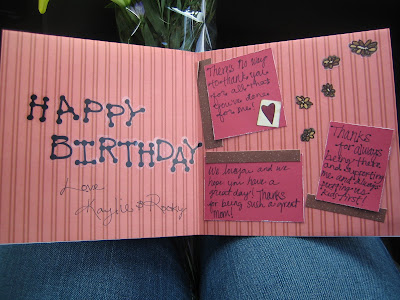 HAPPY
BIRTHDAY
Love
Kaylie & Rocky
There's no way
to thank you
for all that
you've done
for me!
We love you and we
hope you have a
great day! Thanks
for being such a great
Mom!
Thanks
for always
being there
and supporting
me and always
putting us
kids first!